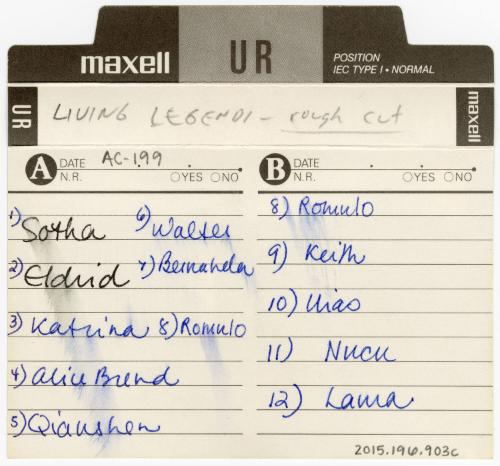 maxell
UR
POSITION
IEC TYPE I • NORMAL
UR
LIVING LEGENDS - rough cut
maxell
A DATE AC-199
N.R. ○YES ○NO
1) Sotha
2) Eldrid
3) Katrina
4) Alice Brend
5) Qianshen
6) Walter
7) Bernarda
8) Romulo
B DATE
N.R. ○YES ○NO
8) Romulo
9) Keith
10) Xiao
11) Nucu
12) Lama
2015.196.903c